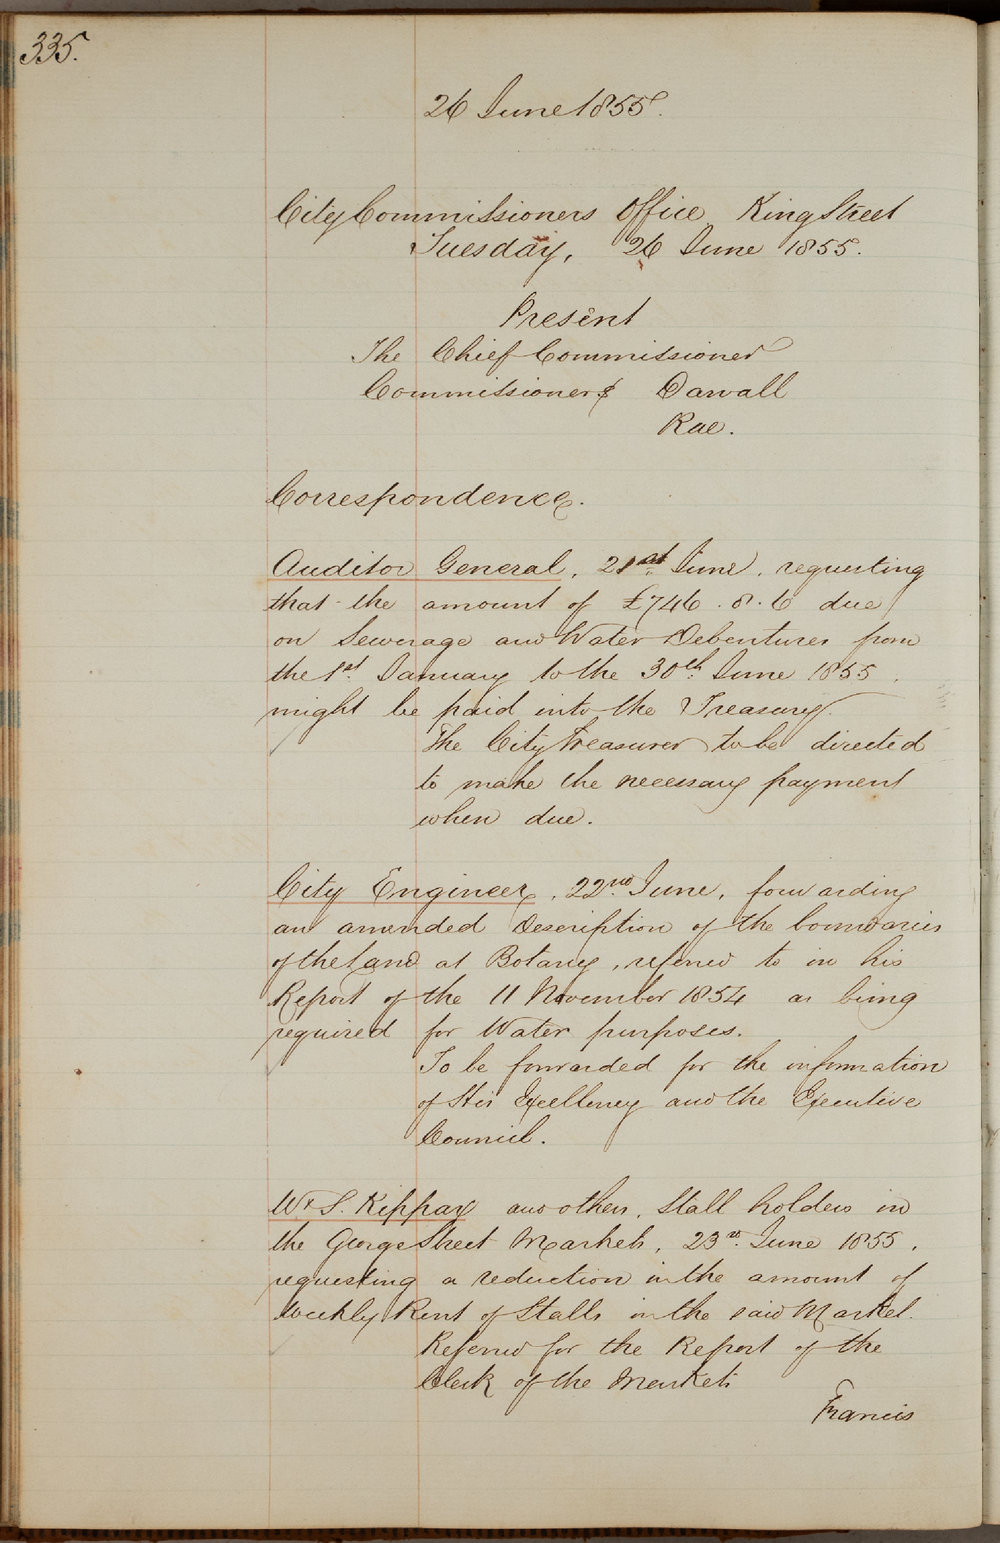 335.
26 June 1855.
City Commissioners Office King Street
Tuesday, 26 June 1855.
Present
The Chief Commissioner
Commissioners Darvall
Rae.
Correspondence.
Auditor General, 21st June, requesting
that the amount of £746.8.6 due
on Sewerage and Water Debentures from
the 1st January to the 30th June 1855.
might be paid into the Treasury.
The City Treasurer to be directed
to make the necessary payment
when due.
City Engineer, 22nd June, forwarding
an amended Description of the boundaries
of the Land at Botany, referred to in his
Report of the 11 November 1854 as being
required for Water purposes.
To be forwarded for the information
of His Excellency and the Executive
Council.
Wm S. Kippax and others, Stall holders in
the George Street Markets, 23rd June 1855,
requesting a reduction in the amount of
weekly Rent of Stalls in the said Market.
Referred for the Report of the
Clerk of the Markets
Francis